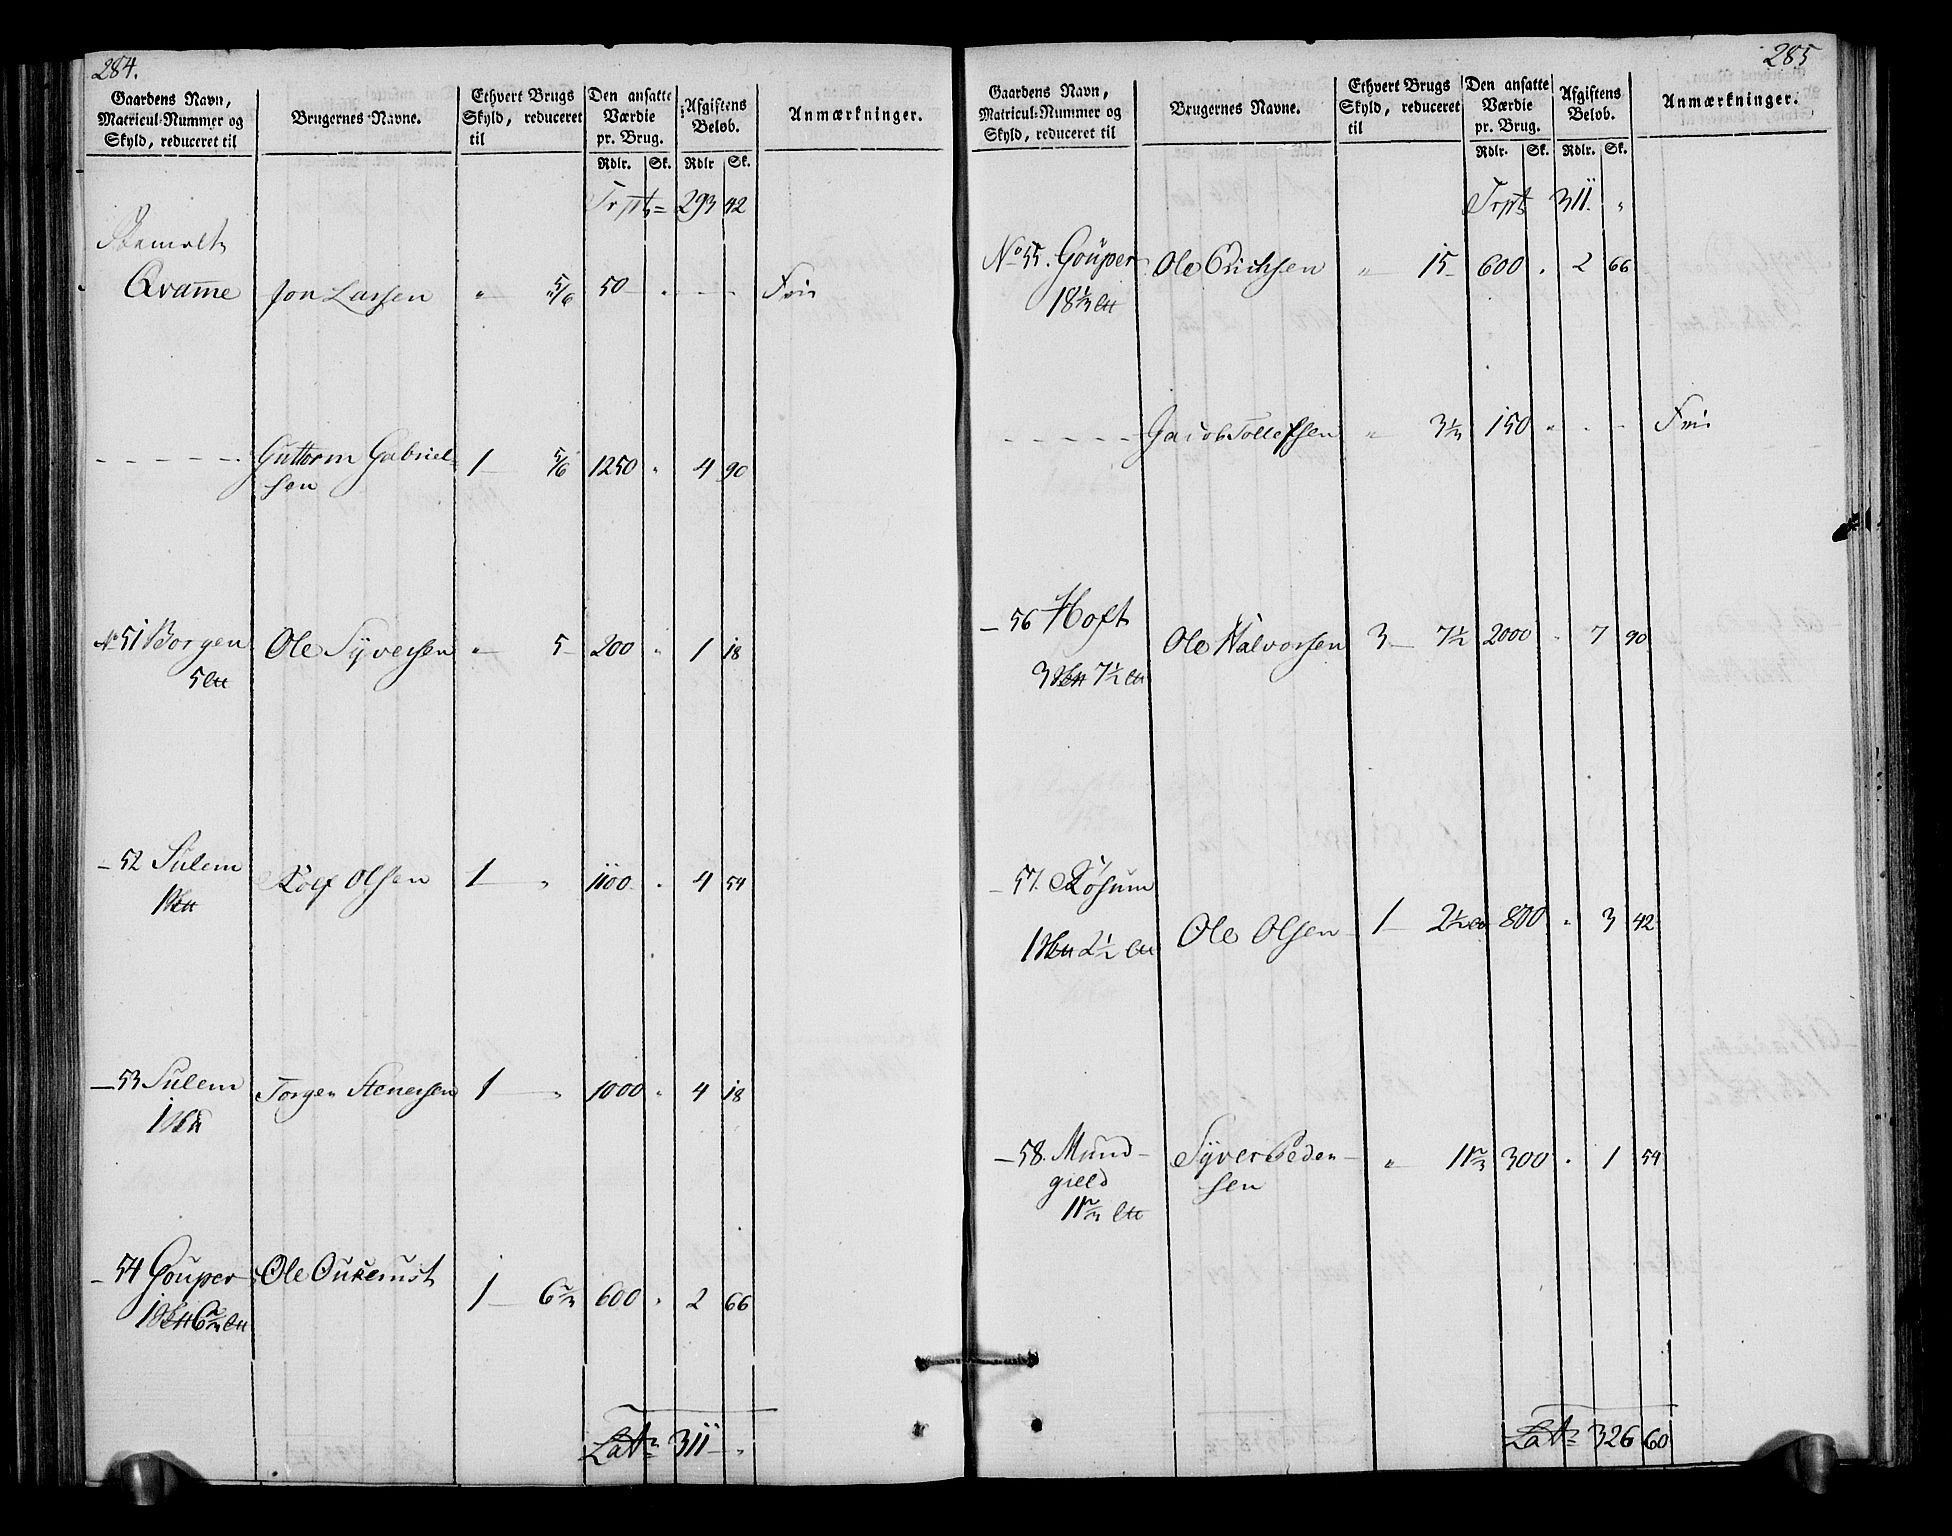 284.
Gaardens Navn, Matricul-Nummer og Skyld, reduceret til | Brugernes Navne. | Ethvert Brugs Skyld, reduceret til | Den ansatte Værdie pr. Brug. | Afgiftens Beløb. | Anmærkninger.
Rdlr. | Sk. | Rdlr | Sk.
Trpt = 293 42
Qvamme | Jon Larsen | " 5/6 | 50 | " | - | - | Frie
- - - - - | Guttorm Gabriel-
sen | 1 5/6 | 1250 | " | 4 | 90
No 51 Borgen | Ole Syversen | " 5 | 200 | " | 1 | 18
5
- 52 Sulem | Rolf Olsen | 1 " | 1100 | " | 4 | 54
1
- 53 Sulem | Torgen Stenersen | 1 " | 1000 | " | 4 | 18
1
- 54 Gouper | Ole | 1 6 2/3 | 600 | " | 2 | 66
1 6 2/3
Lat. 311 "
285
Gaardens Navn, Matricul-Nummer og Skyld, reduceret til | Brugernes Navne. | Ethvert Brugs Skyld, reduceret til | Den ansatte Værdie pr. Brug. | Afgiftens Beløb. | Anmærkninger.
Rdlr. | Sk. | Rdlr. | Sk.
Trpt 311. "
No 55. Gouper | Ole Erichsen | " 15 | 600 | " | 2 | 66
18 1/3
- - - - - | Jacob Tollefsen | " 3 1/3 | 150 | " | - | - | Frie
- 56 Hoft | Ole Halvorsen | 3 7 1/2 | 2000 | " | 7 | 90
3 7 1/2
- 57. Røsum | Ole Olsen | 1 2 1/2 | 800 | " | 3 | 42
1 2 1/2
- 58. Mund- | Syver Peder-
gield | sen | " 11 2/3 | 300 | " | 1 | 54
11 2/3
Lat. 326 60